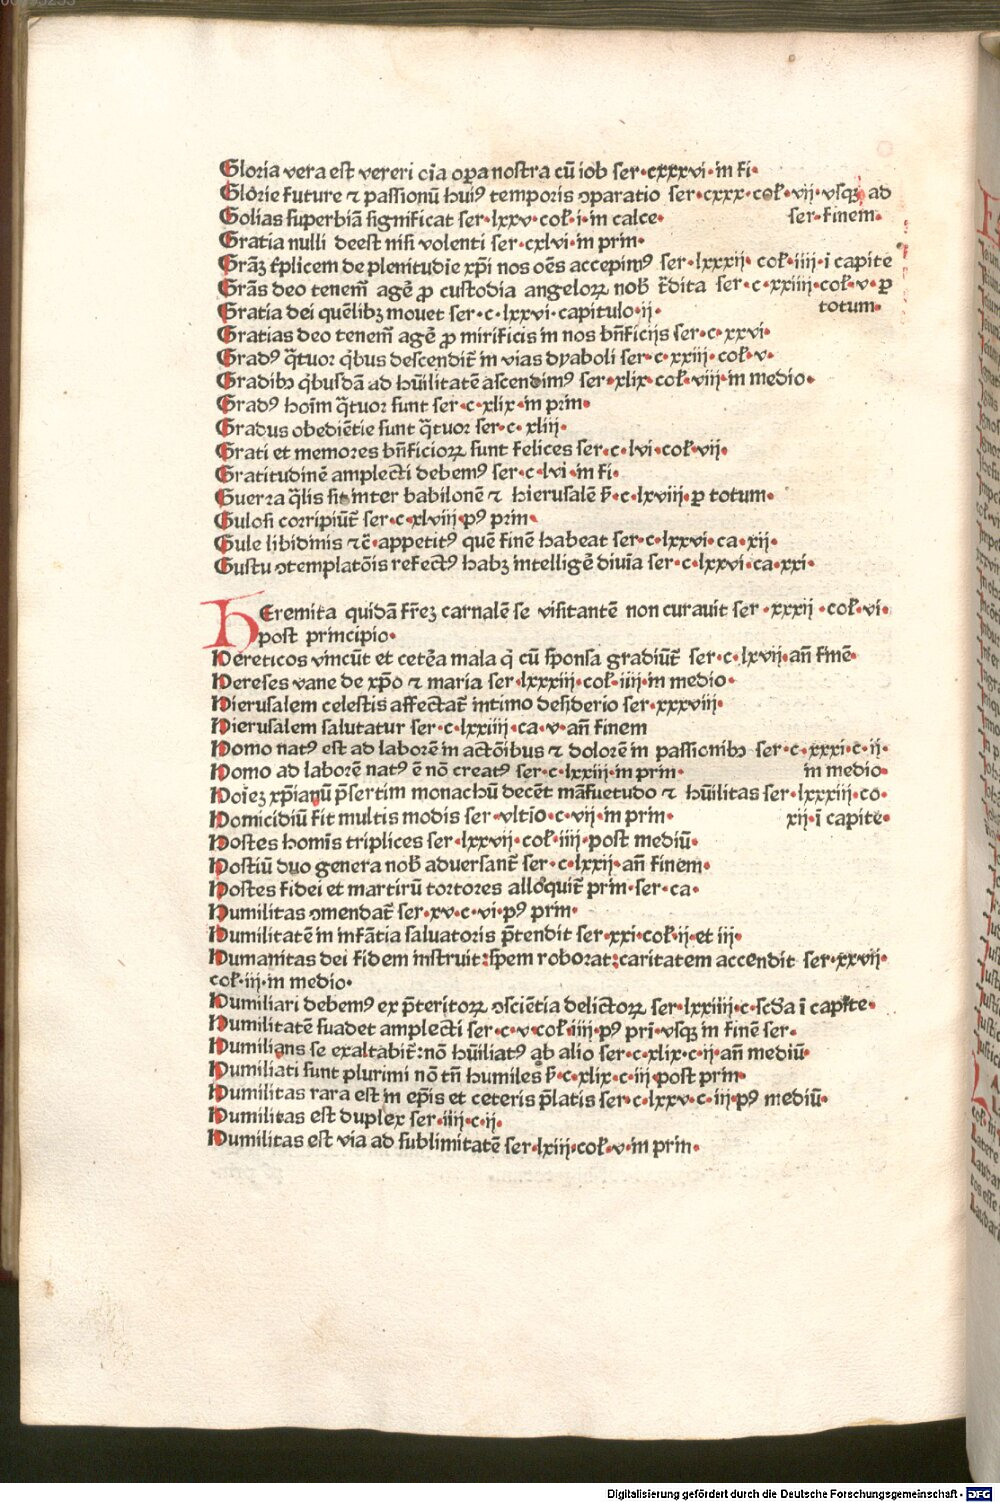 Gloria vera est vereri oīa oꝑa nostra cū iob ser·cxxxvi·in fi·
Glorie future ⁊ passionū huiꝰ temporis ꝯparatio ser·cxxx·col̄·vii·vsqꝫ ad
Golias superbiā significat ser·lxxv·col̄·i·in calce· ser·finem·
Gratia nulli deest nisi volenti ser·cxlvi·in prin·
Grāꝫ t̄plicem de plenitudīe xp̄i nos oēs accepimꝰ ser·lxxxii·col̄·iiii·ī capite
Grās deo tenem̄ agē ꝓ custodia angelorꝝ nob̄ t̄dita ser·c·xxiiii·col̄·v·ꝑ
Gratia dei quēlibꝫ mouet ser·c·lxxvi·capitulo·ii· totum·
Gratias deo tenem̄ agē ꝓ mirificis in nos bn̄ficijs ser·c·xxvi·
Gradꝰ q̄tuor qͥbus descendit̄ in vias dyaboli ser·c·xxiii·col̄·v·
Gradibꝫ qͥbusdā ad hūilitatē ascendimꝰ ser·xlix·col̄·viii·in medio·
Gradꝰ hoīm q̄tuor sunt ser·c·xlix·in prin·
Gradus obediētie sunt q̄tuor ser·c·xliii·
Grati et memores bn̄ficiorꝝ sunt felices ser·c·lvi·col̄·vii·
Gratitudinē amplecti debemꝰ ser·c·lvi·in fi·
Guerra q̄lis sit inter babilonē ⁊ hierusalē s̄·c·lxviii·ꝑ totum·
Gulosi corripiūt̄ ser·c·xlviii·pꝰ prin·
Gule libidinis ⁊c̄·appetitꝰ quē finē habeat ser·c·lxxvi·ca·xii·
Gustu ꝯtemplatōis refectꝰ habꝫ intelligē diuīa ser·c·lxxvi·ca·xxi·
HEremita quidā fr̄eꝫ carnalē se visitantē non curauit ser·xxxii·col̄·vi·
post principio·
Hereticos vincūt et cetēa mala q̄ cū sponsa gradiūt̄ ser·c·lxvii·an̄ finē·
Hereses vane de xp̄o ⁊ maria ser·lxxxiii·col̄·iiii·in medio·
Hierusalem celestis affectat̄ intimo desiderio ser·xxxviii·
Hierusalem salutatur ser·c·lxxiiii·ca·v·an̄ finem
Homo natꝰ est ad laborē in actōibus ⁊ dolorē in passionibꝫ ser·c·xxxi·c·ii·
Homo ad laborē natꝰ ē nō creatꝰ ser·c·lxxiii·in prin· in medio·
Hoīeꝫ xp̄ianū p̄sertim monachū decēt māsuetudo ⁊ hūilitas ser·lxxxiii·co·
Homicidiū fit multis modis ser·vltīo·c·vii·in prin· xii·ī capite·
Hostes hominis triplices ser·lxxvii·col̄·iiii·post mediū·
Hostiū duo genera nob̄ aduersant̄ ser·c·lxxii·an̄ finem·
Hostes fidei et martirū tortores alloquit̄ prin·ser·ca·
Humilitas ꝯmendat̄ ser·xv·c·vi·pꝰ prin·
Humilitatē in infātia saluatoris p̄tendit ser·xxi·col̄·ii·et iii·
Humanitas dei fidem instruit:spem roborat:caritatem accendit ser·xxvii·
col̄·iii·in medio·
Humiliari debemꝰ ex p̄teritorꝝ ꝯsciētia delictorꝝ ser·lxxiiii·c·scd̄a ī capite·
Humilitatē suadet amplecti ser·c·v·col̄·iiii·pꝰ pri·vsqꝫ in finē ser·
Humilians se exaltabit̄:nō hūiliatꝰ ab alio ser·c·xlix·c·ii·an̄ mediū·
Humiliati sunt plurimi nō tn̄ humiles s̄·c·xlix·c·iii·post prin·
Humilitas rara est in ep̄is et ceteris p̄latis ser·c·lxxv·c·iii·pꝰ mediū·
Humilitas est duplex ser·iiii·c·ii·
Humilitas est via ad sublimitatē ser·lxiii·col̄·v·in prin·
Digitalisierung gefördert durch die Deutsche Forschungsgemeinschaft - DFG